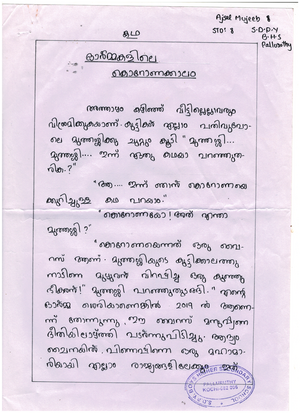 Ajsal Mujeeb
STD: 8 S.D.P.Y
B.H.S
Palluruthy
കഥ
ഓർമ്മകളിലെ
കൊറോണക്കാലം
അത്താഴം കഴിഞ്ഞ് വീട്ടിലെല്ലാവരും
വിശ്രമിക്കുകയാണ്. കുട്ടികൾ എല്ലാം പതിവുപോ
ലെ മുത്തശ്ശിക്കു ചുറ്റും കൂടി. "മുത്തശ്ശി...
മുത്തശ്ശി.... ഇന്ന് ഏതു കഥയാ പറഞ്ഞുത
രിക.?"
"ആ.... ഇന്ന് ഞാൻ കൊറോണയെ
കുറിച്ചുള്ള കഥ പറയാം."
"കൊറോണയോ! അത് എന്താ
മുത്തശ്ശി?"
"കൊറോണയെന്നത് ഒരു വൈ
റസ് ആണ്. മുത്തശ്ശിയുടെ കുട്ടിക്കാലത്തു
നാടിനെ മുഴുവൻ വിറപ്പിച്ച ഒരു കുഞ്ഞു
ഭീകരൻ!" മുത്തശ്ശി പറഞ്ഞുതുടങ്ങി. "എന്റെ
ഓർമ്മ ശരിയാണെങ്കിൽ 2019 ൽ ആണെ
ന്ന് തോന്നുന്നു, ഈ വൈറസ് മനുഷ്യനെ
ഭീതിയിലാഴ്ത്തി പടർന്നുപിടിച്ചു. ആദ്യം
ചൈനയിൽ. പിന്നെപിന്നെ ഒരു മഹാമാ
രിയായി എല്ലാം രാജ്യങ്ങളിലേക്കും അത്
PALLURUTHY
KOCHI-682 006